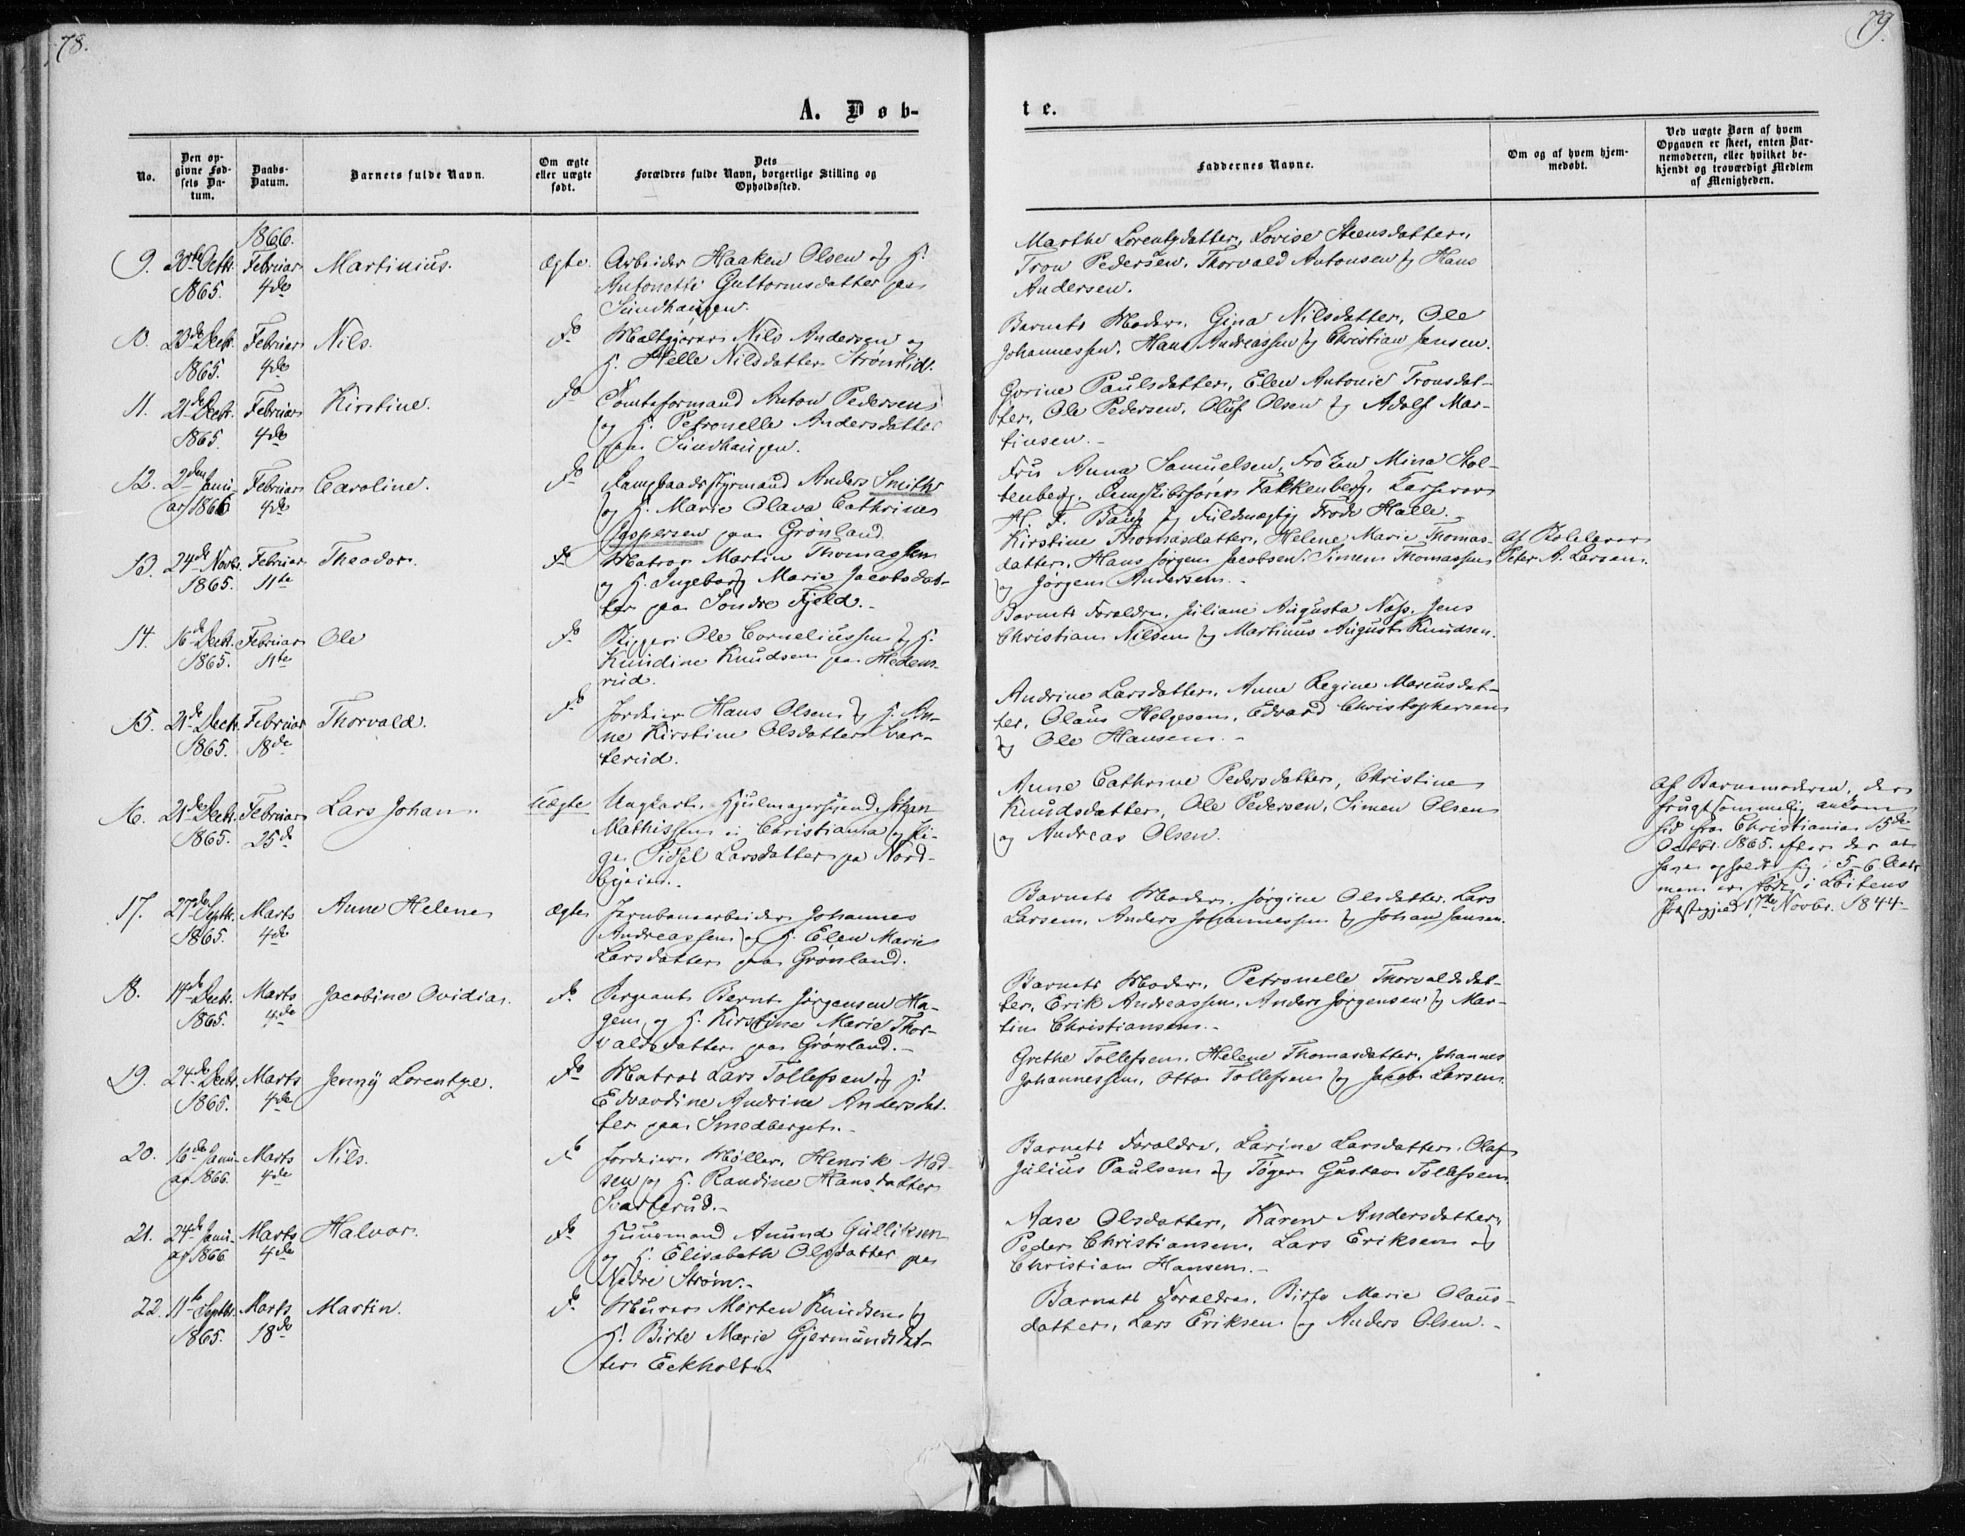 78.
A. Døb-
No.
Den op-
givne Fød-
sels Da-
tum.
Daabs-
Datum.
Barnets fulde Navn.
Om ægte
eller uægte
født.
Dets
Forældres fulde Navn, borgerlige Stilling og
Opholdssted.
1866.
9. 30te Octbr. 1865. Februar 4de Martinius. ægte. Arbeider Haaken Olsen og H.
Antonette Guttormsdatter paa
Sundhaugen.
10. 23de Decbr. 1865. Februar 4de Nils. do Maltgjører Nils Andersen og
H. Helle Nilsdatter Strømlid.
11. 21de Decbr. 1865. Februar 4de Kirstine. do Tomteformand Anton Pedersen
og H. Petronelle Andersdatter
paa Sundhaugen.
12. 2den Janu- ar 1866 Februar 4de Caroline. do Dampbaadsstyrmand Anders Smith
og H. Marie Olava Cathrine
Jespersen paa Grønland.
13. 24de Novbr. 1865. Februar 11te Theodor. do Matros Martin Thomassen
og H. Ingeborg Marie Jacobsdat-
ter paa Søndre Fjeld.
14. 16de Decbr. 1865. Februar 11te Ole do Rigger Ole Corneliussen og H.
Kundine Knudsen paa Hedens-
rud.
15. 21de Decbr. 1865. Februar 18de Thorvald. do Jordeier Hans Olsen og H. An-
ne Kirstine Olsdatter Svar-
terud.
16. 21de Decbr. 1865. Februar 25de Lars Johan. Uægte Ungkarl, Hjulmagersvend Johan
Mathissen i Christiania og Pi-
ge Sidsel Larsdatter paa Nord-
byeien.
17. 27de Septbr. 1865. Marts 4de Anne Helene ægte Jernbanearbeider Johannes
Andreassen og H. Elen Marie
Larsdatter paa Grønland.
18. 14de Decbr. 1865. Marts 4de Jacobine Ovidia. do. Sergeant Bernt Jørgensen Ha-
gen og H. Kirstine Marie Thor-
valdsdatter paa Grønland.
19. 24de Decbr. 1865. Marts 4de Jenny Lorentze. do Matros Lars Tollefsen og H.
Edvardine Andrine Andersdat-
ter paa Smedberget.
20. 16de Janu- ar 1866. Marts 4de Nils. do Jordeier, Møller, Henrik Mad-
sen og H. Randine Hansdatter
Svarterud.
21. 24de Janu- ar 1866 Marts 4de Halvor. do. Huusmand Anund Gulliksen
og H. Elisabeth Olsdatter paa
Nedre Strøm.
22 11te Septbr. 1865. Marts 18de Martin. do. Murer Morten Knudsen og
H. Birte Marie Gjermundsdat-
ter Eckholt
79.
te.
Faddernes Navne.
Om og af hvem hjem-
medøbt.
Ved uægte Børn af hvem
Opgaven er skeet, enten Bar-
nemoderen, eller hvilket be-
kjendt og troværdigt Medlem
af Menigheden.
Marthe Lorentzdatter, Lovise Steensdatter,
Tron Pedersen, Thorvald Antonsen og Hans
Andersen.
Barnets Moder, Gina Nilsdatter, Ole
Johannessen, Hans Andreassen og Christian Jensen.
Gorine Paulsdatter, Elen Antonie Tronsdat-
ter, Ole Pedersen, Oluf Olsen og Adolf Mar-
tinsen.
Fru Anna Samuelsen, Frøken Mina Stol-
tenberg, Dampskibsfører Falkenberg, Kasserer
H. F. Bang og Fuldmægtig Frode Halle.
Kirstine Thomasdatter, Helene Marie Thomas-
datter, Hans Jørgen Jacobsen, Simen Thomassen
og Jørgen Andersen.
af
Peter A. Larsen.
Barnets Forældre, Juliane Augusta Næss, Jens
Christian Nilsen og Martinus August Knudsen.
Andrine Larsdatter, Anne Regine Marcusdat-
ter, Olaus Helgesen, Edvard Christophersen
og Ole Hansen.
Anne Cathrine Pedersdatter, Christine
Knudsdatter, Ole Pedersen, Simen Olsen
og Andreas Olsen.
Af Barnemoderen, der
frugtsommelig ankom
hid fra Christiania 15de
Octbr. 1865. efter der at
have opholdt sig i 5-6 Aar
men er født i Løitens
Præstegjeld 17de Novbr. 1844-
Barnets Moder, Jørgine Olsdatter, Lars
Larsen, Anders Johannessen og Johan Jansen.
Barnets Moder, Petronelle Thorvaldsdat-
ter, Erik Andreassen, Anders Jørgensen og Mar-
tin Christiansen.
Grethe Tollefsen, Helene Thomasdatter, Johannes
Johannessen, Otto Tollefsen og Jacob Larsen.
Barnets Forældre, Larine Larsdatter, Olaf
Julius Paulsen og Tøger Gustav Tollefsen.
Aase Olsdatter, Karen Andersdatter,
Peder Christiansen, Lars Eriksen og
Christian Hansen.
Barnets Forældre, Birte Marie Olaus-
datter, Lars Eriksen og Anders Olsen.